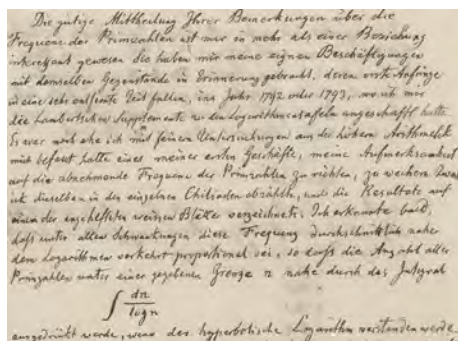 Die gütige Mittheilung Ihrer Bemerkungen über die
Frequenz der Primzahlen ist mir in mehr als einer Beziehung
interessant gewesen. Sie haben mir meine eignen Beschäftigungen
mit demselben Gegenstande in Erinnerung gebracht, deren erste Anfänge
in eine sehr entfernte Zeit fallen, ins Jahr 1792 oder 1793, wo ich mir
die Lambertschen Supplemente zu den Logarithmentafeln angeschafft hatte.
Es war noch ehe ich mit feinern Untersuchungen aus der höhern Arithmetik
mich befasst hatte eines meiner ersten Geschäfte, meine Aufmerksamkeit
auf die abnehmende Frequenz der Primzahlen zu richten, zu welchem Zweck
ich dieselben in den einzelnen Chiliaden abzählte, und die Resultate auf
einem der angehefteten weissen Blätter verzeichnete. Ich erkannte bald,
dass unter allen Schwankungen diese Frequenz durchschnittlich nahe
dem Logarithmen verkehrt proportional sei, so dass die Anzahl aller
Primzahlen unter einer gegebenen Grenze n nahe durch das Integral
∫ dn / log n
ausgedrückt werde, wenn der hyperbolische Logarithm verstanden werde